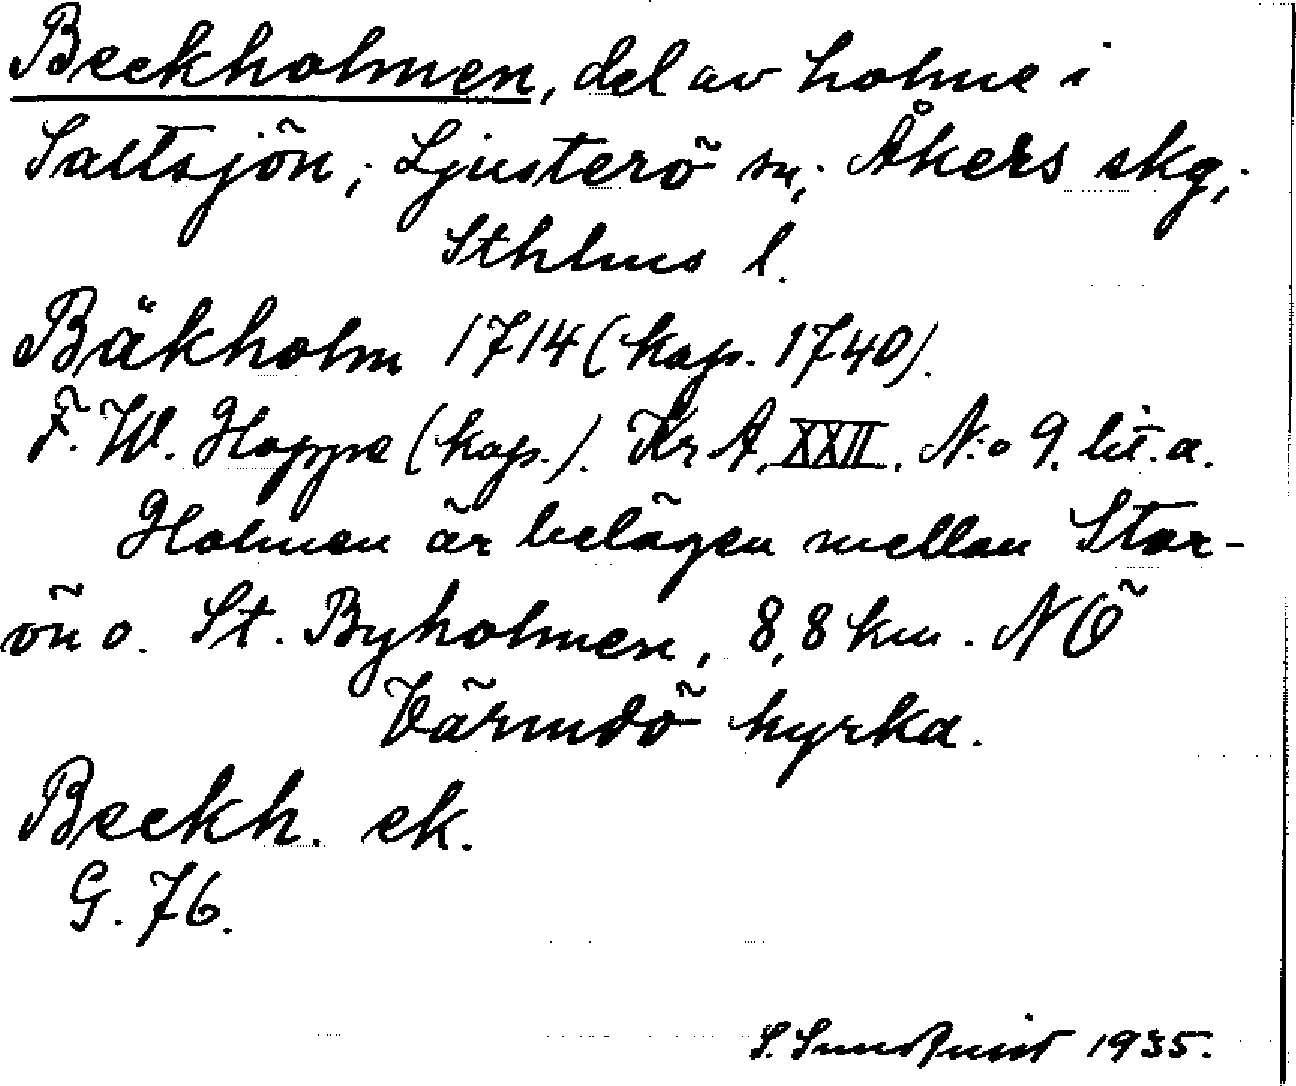 Beckholmen, del av holme i
Saltsjön; Ljusterö sn; Åkers skg;
Sthlms l.
Bäkholm 1714 (kop. 1740).
F. W. Hoppe (kop.). Kr A, XXII. N:o 9. lit. a.
Holmen är belägen mellan Stor-
ön o. St. Byholmen, 8,8 km. NÖ
Värmdö kyrka.
Beckh. ek.
G. 76.
S. Sundqvist 1935.